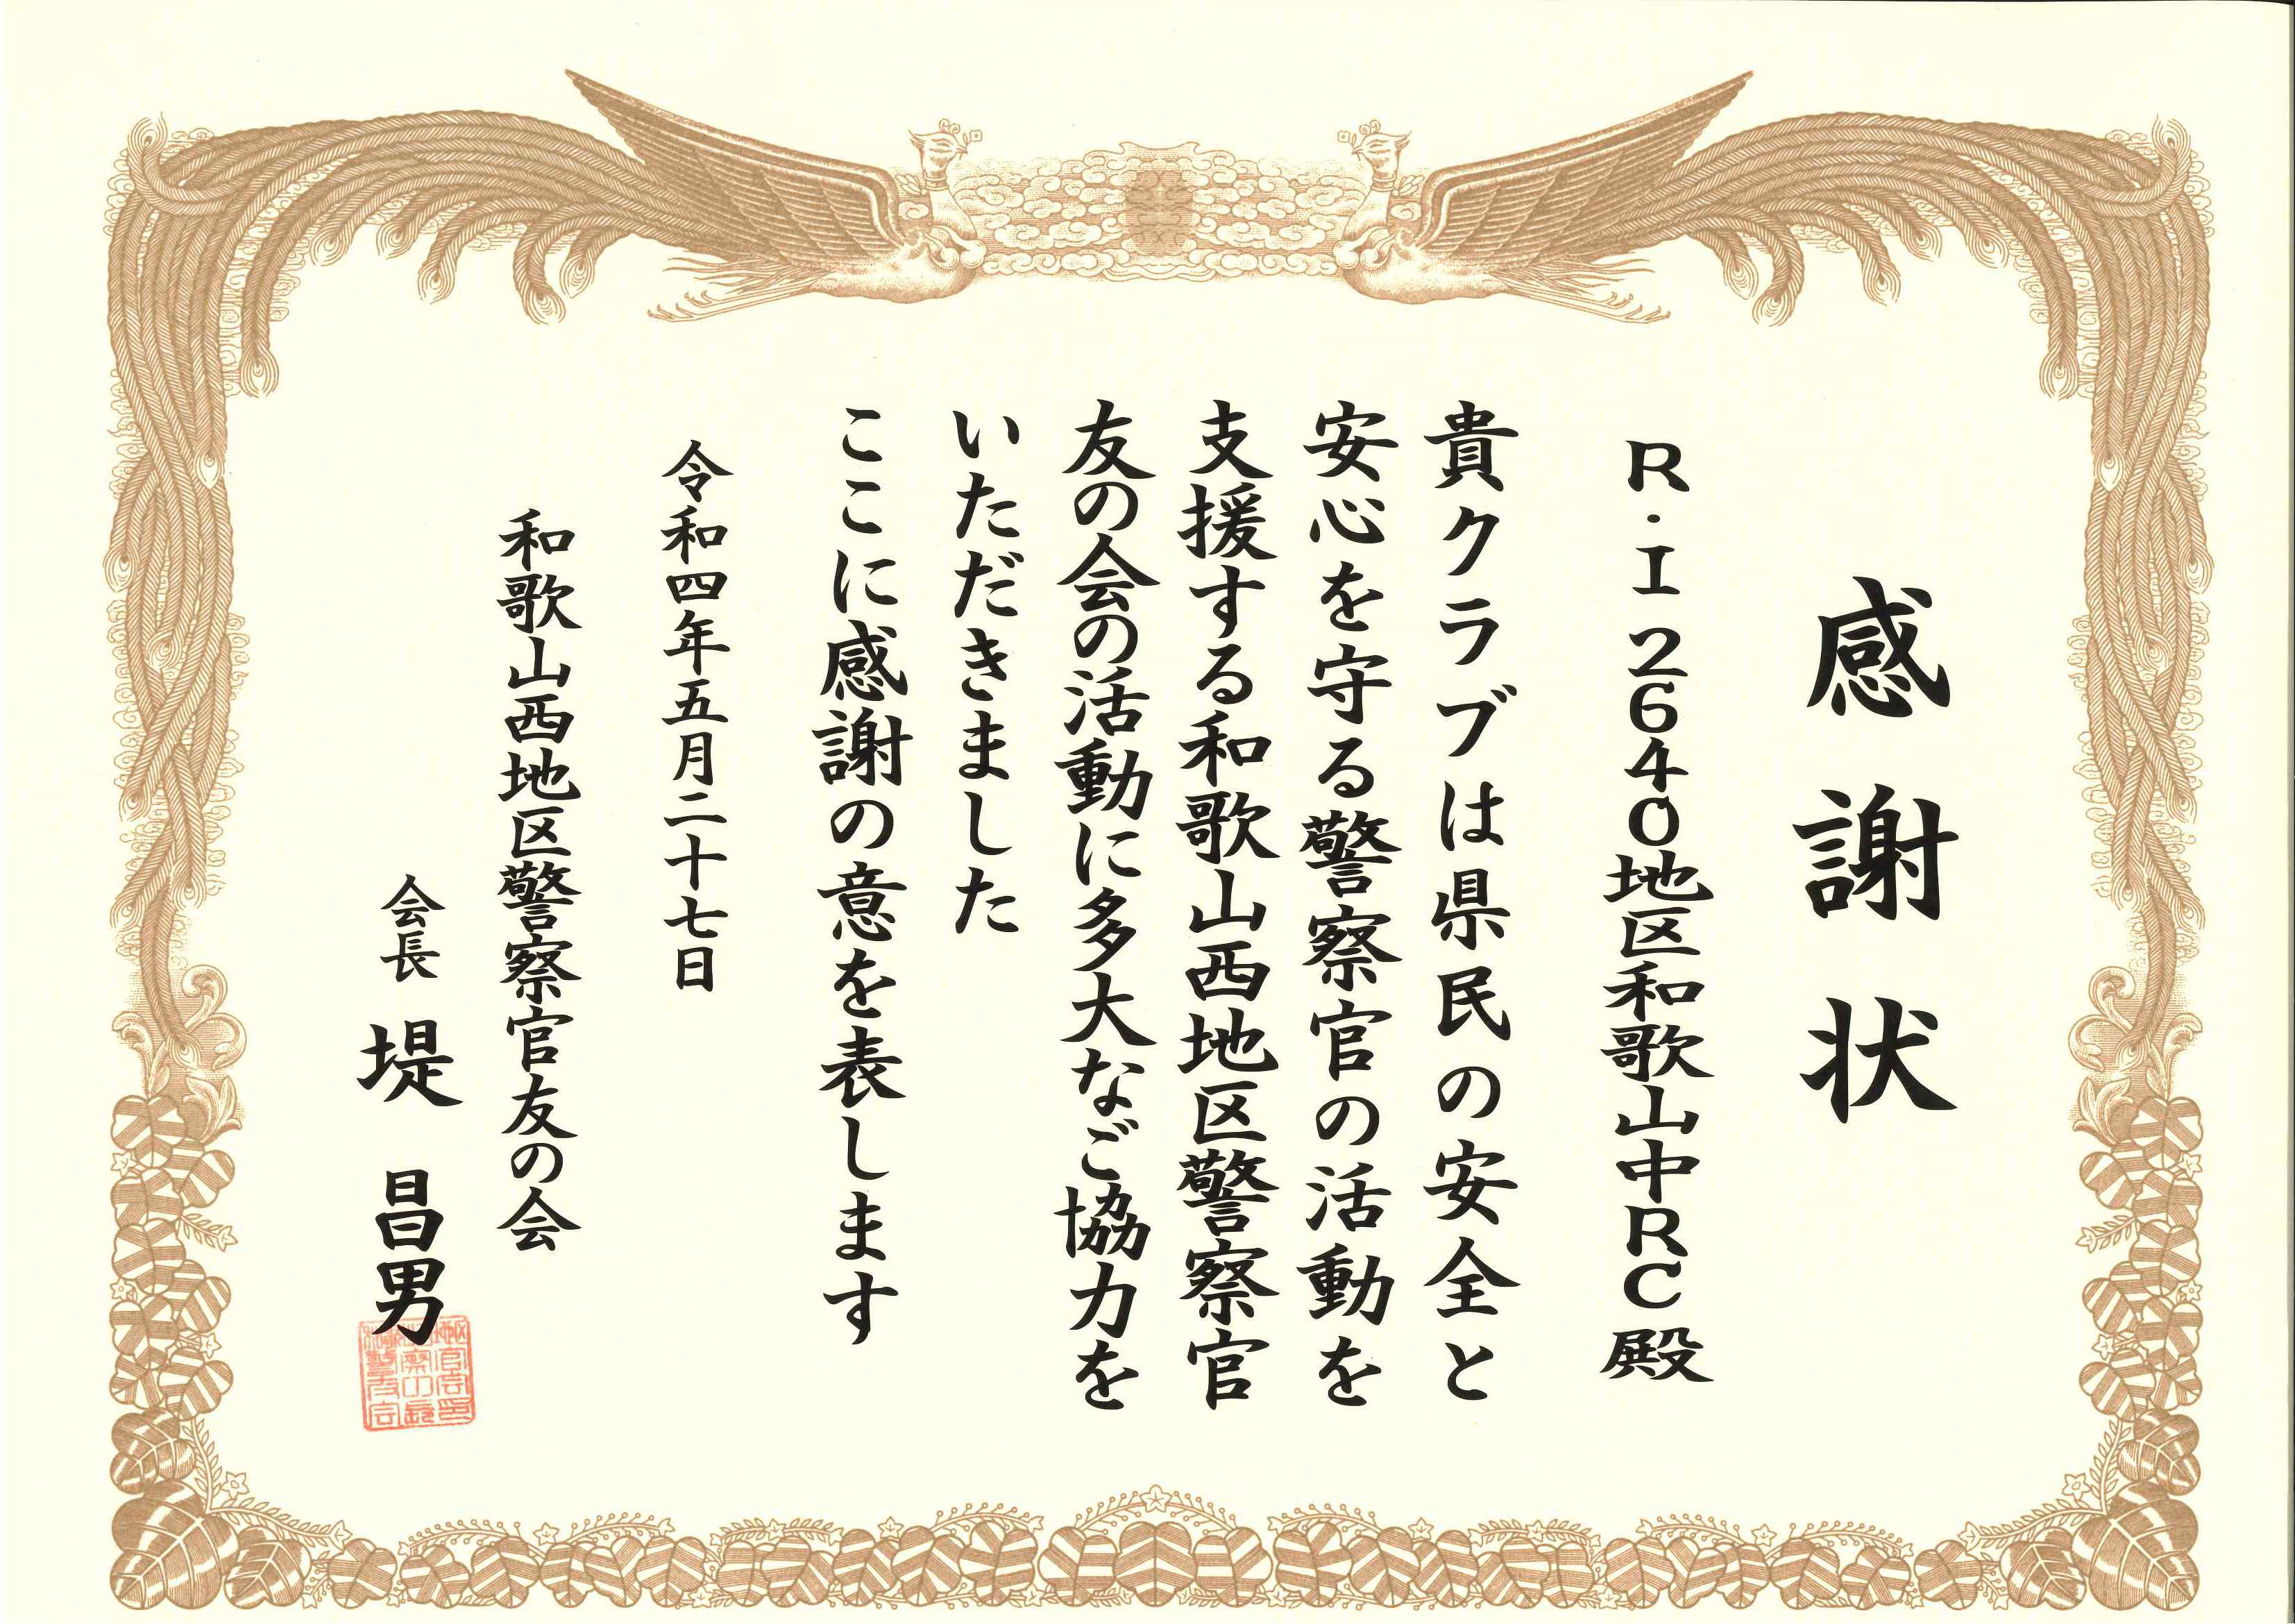 感謝状
R.I2640地区和歌山中RC殿
貴クラブは県民の安全と
安心を守る警察官の活動を
支援する和歌山西地区警察官
友の会の活動に多大なご協力を
いただきました
ここに感謝の意を表します
令和四年五月二十七日
和歌山西地区警察官友の会
会長 堤 昌男